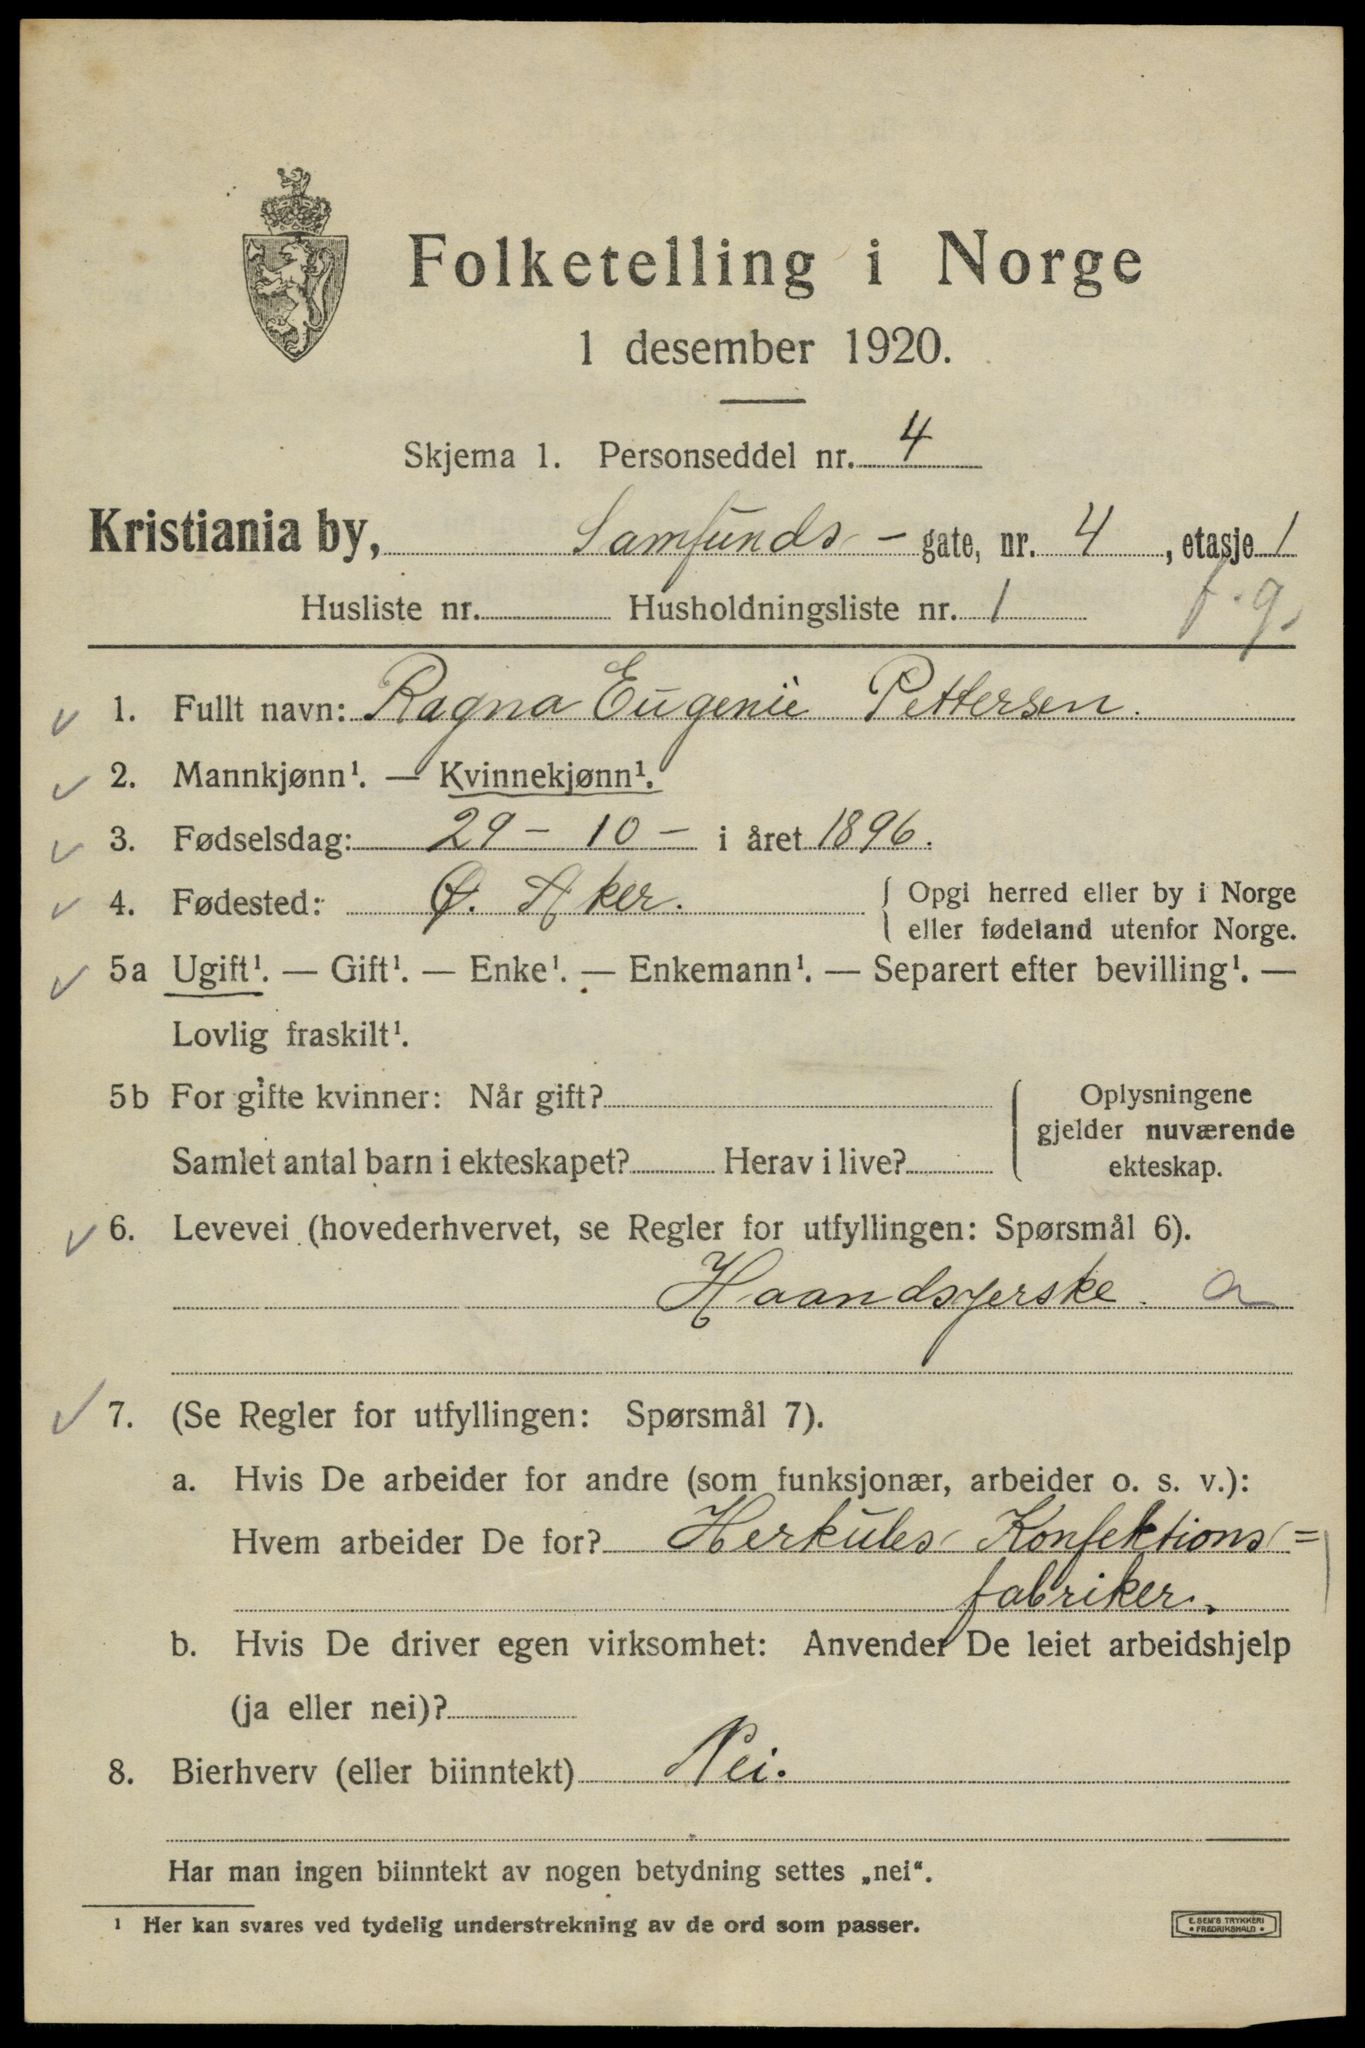 Folketelling i Norge
1 desember 1920.
Skjema 1. Personseddel nr. 4
Kristiania by, Samfunds - gate, nr. 4, etasje 1
Husliste nr. Husholdningsliste nr. 1 f.g.
1. Fullt navn: Ragna Eugenie Pettersen.
2. Mannkjønn¹. — Kvinnekjønn¹.
3. Fødselsdag: 29 - 10 - i året 1896.
4. Fødested: Ø. Aker. { Opgi herred eller by i Norge
eller fødeland utenfor Norge.
5a Ugift¹. — Gift¹. — Enke¹. — Enkemann¹. — Separert efter bevilling¹. —
Lovlig fraskilt¹.
5b For gifte kvinner: Når gift? Oplysningene
gjelder nuværende
Samlet antal barn i ekteskapet? Herav i live? ekteskap.
6. Levevei (hovederhvervet, se Regler for utfyllingen: Spørsmål 6).
Haandsyerske. a
7. (Se Regler for utfyllingen: Spørsmål 7).
a. Hvis De arbeider for andre (som funksjonær, arbeider o. s. v.):
Hvem arbeider De for? Herkules Konfektions=
fabriker.
b. Hvis De driver egen virksomhet: Anvender De leiet arbeidshjelp
(ja eller nei)?
8. Bierhverv (eller biinntekt) Nei.
Har man ingen biinntekt av nogen betydning settes „nei“.
¹ Her kan svares ved tydelig understrekning av de ord som passer.
E. SEM'S TRYKKERI
FREDRIKSHALD